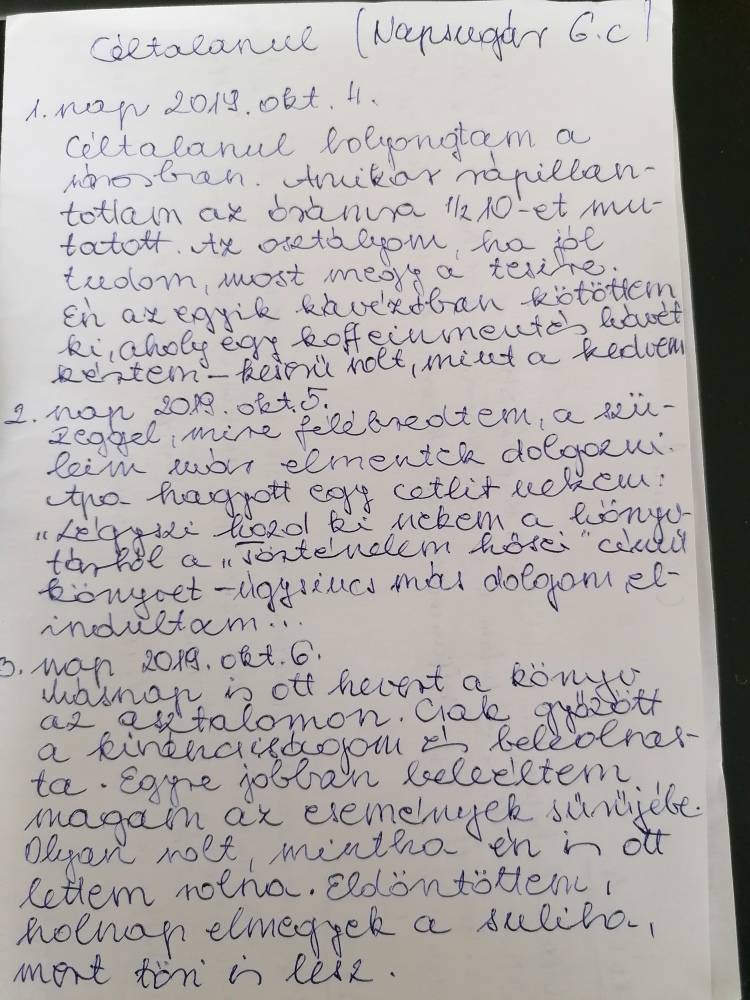 Céltalanul (Napsugár 6.c)
1. nap 2019. okt. 4.
Céltalanul bolyongtam a
városban. Amikor rápillan-
tottam az órámra 1/2 10-et mu-
tatott. Az osztályom, ha jól
tudom, most megy a tesire.
Én az egyik kávézóban kötöttem
ki, aholy egy koffeinmentes kávét
kértem – keserű volt, mint a kedvem
2. nap 2019. okt. 5.
Reggel, mire felébredtem, a szü-
leim már elmentek dolgozni.
Apa hagyott egy cetlit nekem:
"Légyszi hozd ki nekem a könyv-
tárból a "Történelem hősei" című
könyvet – úgysincs más dolgom, el-
indultam...
3. nap 2019. okt. 6.
Másnap is ott hevert a könyv
az asztalomon. Csak győzött
a kíváncsiságom és beleolvas-
ta. Egyre jobban beleéltem
magam az események sűrűjébe.
Olyan volt, mintha én is ott
lettem volna. Eldöntöttem,
holnap elmegyek a suliba,
mert töri is lesz.